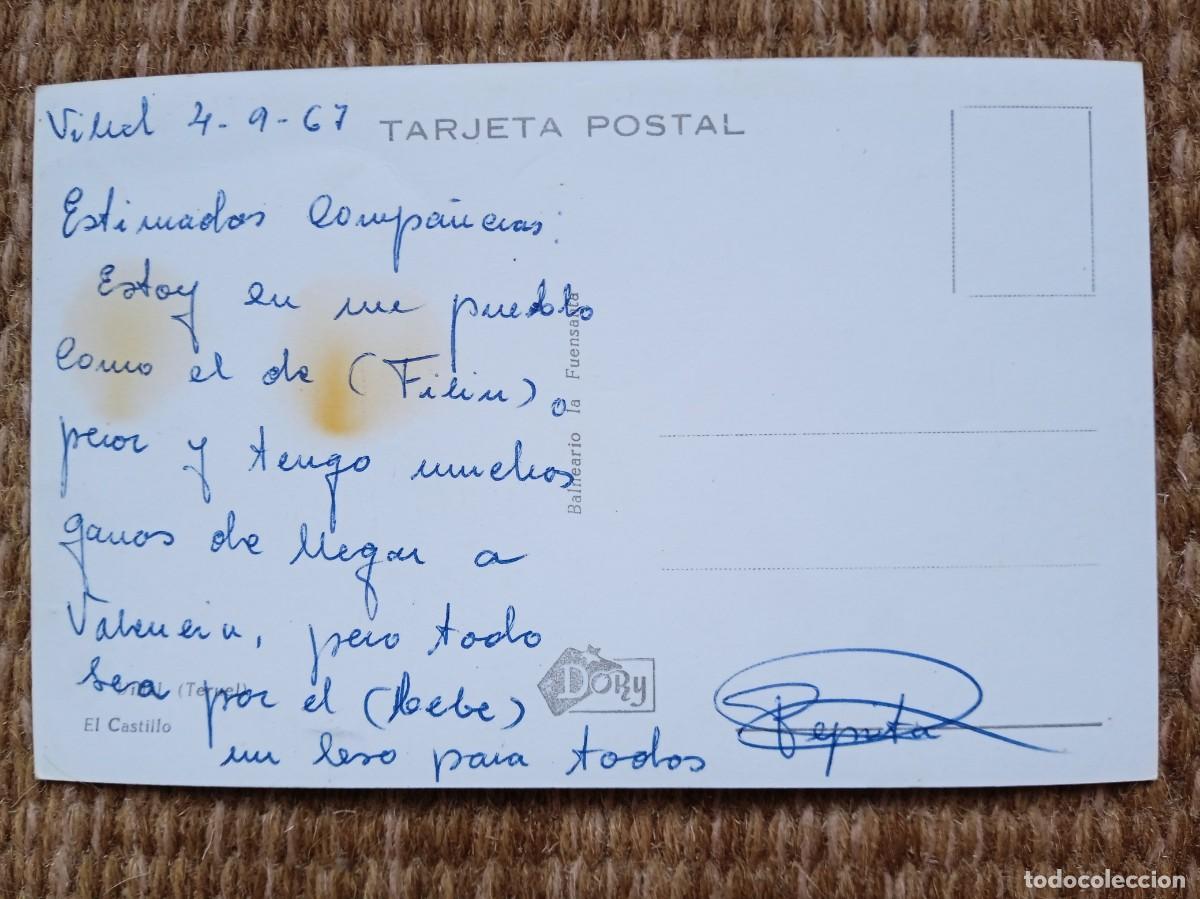 Villel 4-9-67
TARJETA POSTAL
Estimados Compañeros:
Estoy en un pueblo
Como el de (Filin) o
peor y tengo muchas
ganas de llegar a
Valencia, pero todo
sea por el (Bebe)
un beso para todos
Pepita
Balneario la Fuensanta
(Teruel)
El Castillo
DORY
todocoleccion